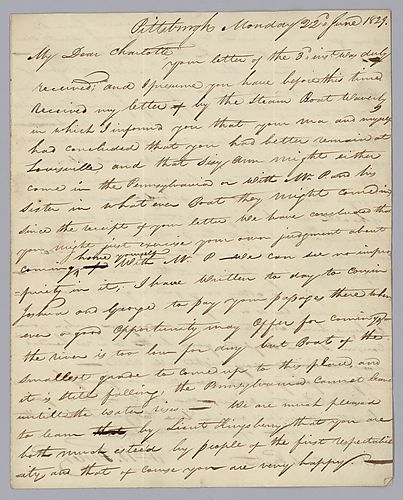 Pittsburgh Monday 22d June 1829.
My Dear Charlotte
your letter of the 3d inst. was duly
received; and I presume you have before this time
received my letter by the Steam Boat Waverly
in which I informed you that your ma and myself
had concluded that you had better remain at
Louisville and that Suzy Ann might either
come in the Pennsylvania or with Mr. P and his
sister in what ever Boat they might come in
since the receipt of your letter We have concluded that
you might just exercise your own judgment about
coming home yourself With Mr. P— We can see no impro-
priety in it; I have Written to day to Cousin
Joshua and George to pay your passages there when
ever a good Opportunity may Offer for coming up
the river is too low for any but Boats of the
smallest grade to come up to this place and
it is still falling the Pennsylvania cannot leave
untill the water rises; — We are much pleased
to learn by Lieut Kingsbury that you are
both much esteed by people of the first respectabil
ity and that of course you are very happy. —